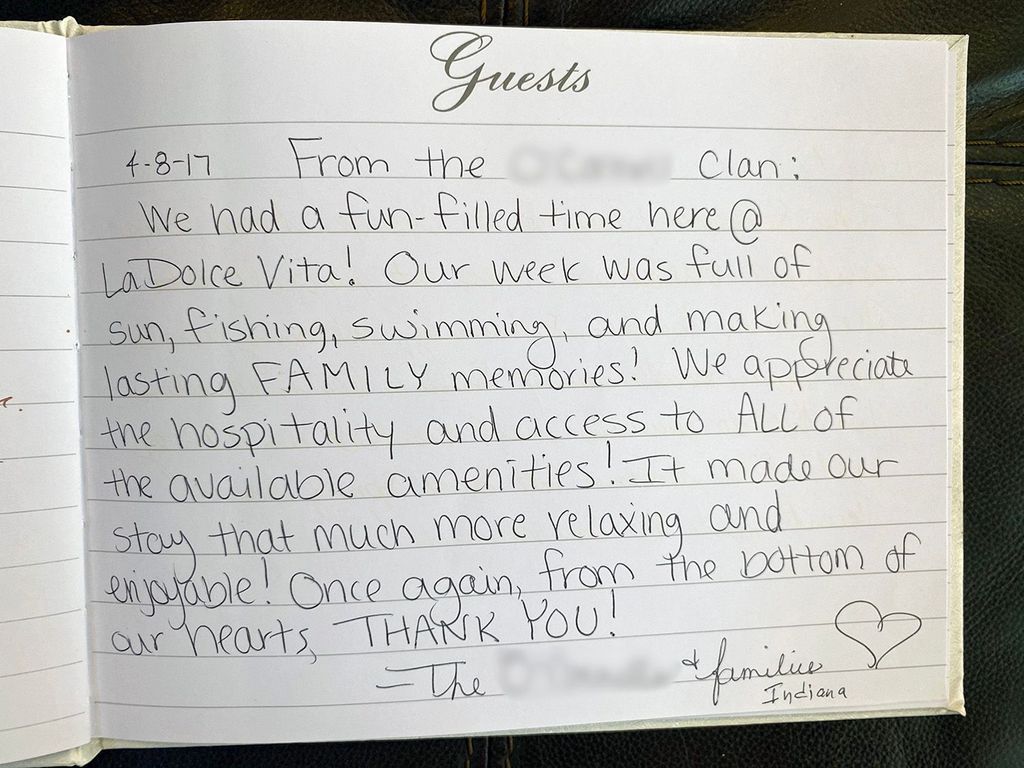 Guests
4-8-17 From the Clan:
We had a fun-filled time here @
La Dolce Vita! Our week was full of
sun, fishing, swimming, and making
lasting FAMILY memories! We appreciate
the hospitality and access to ALL of
the available amenities! It made our
stay that much more relaxing and
enjoyable! Once again, from the bottom of
our hearts, THANK YOU!
- The + families
Indiana